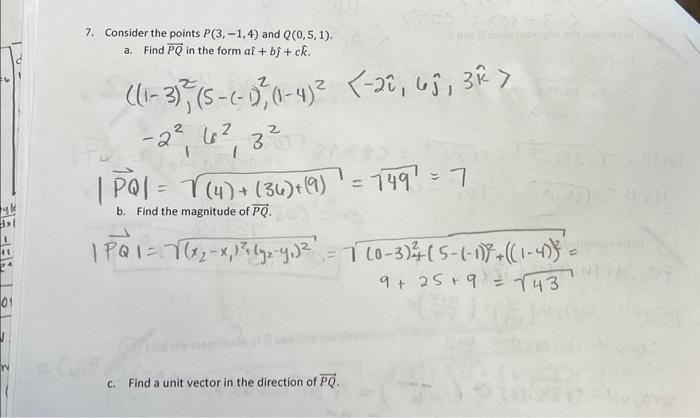 7. Consider the points P(3, −1, 4) and Q(0, 5, 1).
a. Find PQ⃗ in the form aî + bĵ + ck̂.
((1-3)², (5-(-1)², (1-4)² <-2î, 6ĵ, 3k̂>
-2², 6², 3²
|PQ⃗| = √(4)+(36)+(9) = √49 = 7
b. Find the magnitude of PQ⃗.
|PQ⃗| = √(x₂-x₁)²+(y₂-y₁)² = √(0-3)²+(5-(-1))²+((1-4))² =
9 + 25 + 9 = √43
c. Find a unit vector in the direction of PQ⃗.